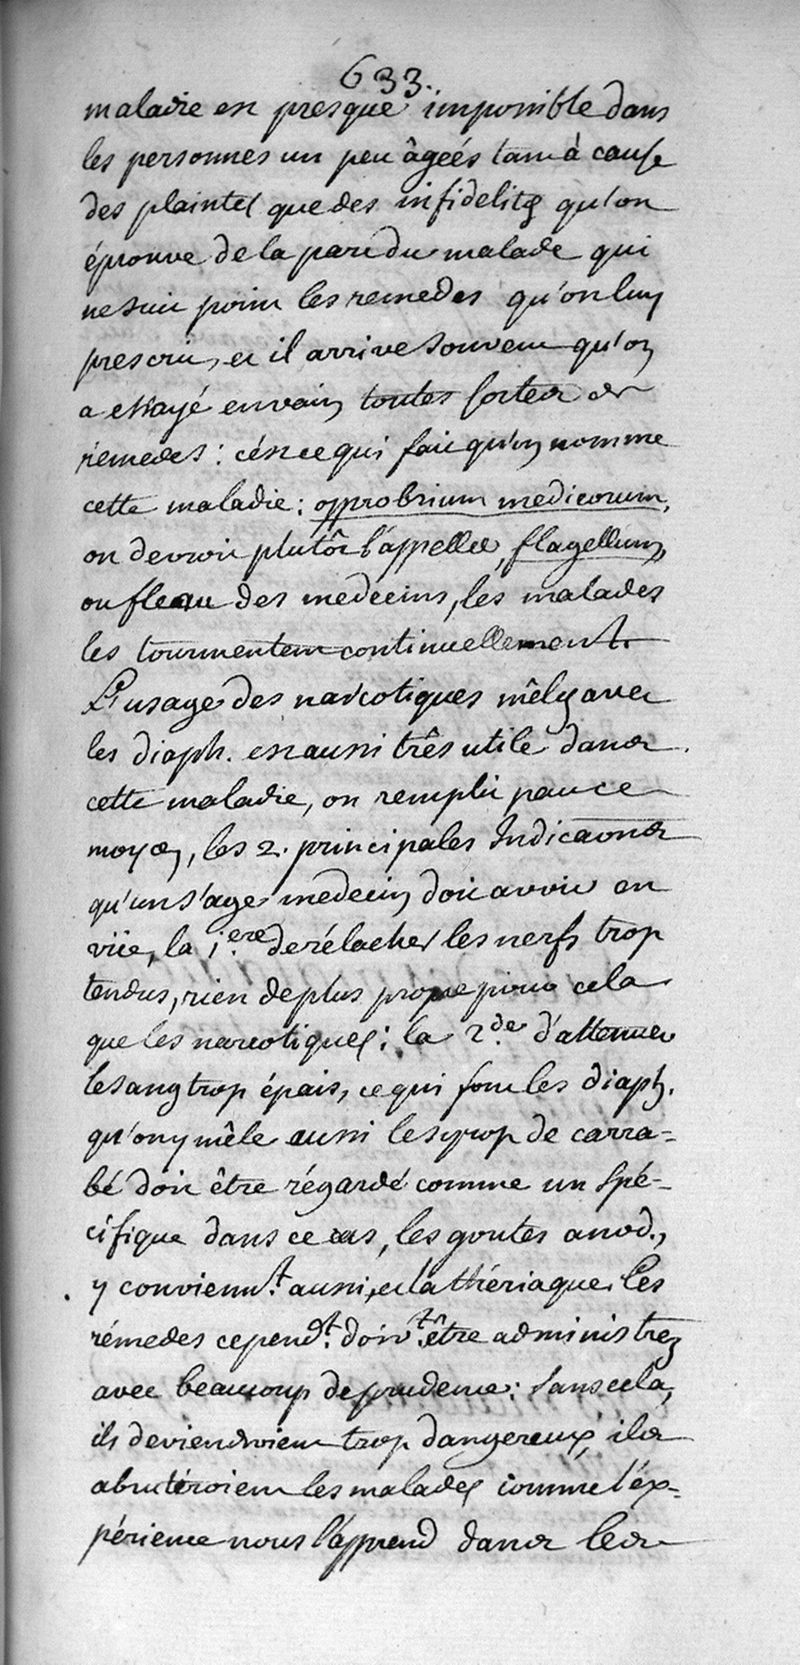 633.
maladie est presque impossible dans
les personnes un peu âgeés tant à cause
des plaintes que des infidelités qu'on
éprouve de la part du malade qui
ne suit point les remedes qu'on luy
prescrit, et il arrive souvent qu'on
a essayé envain toutes sortes de
rémedes : cést ce qui fait qu'on nomme
cette maladie : opprobrium medicorum,
on devroit plutôt l'appeller, flagellum,
ou fleau des medecins, les malades
les tourmentent continuellement.
L'usage des narcotiques mêlés avec
les diaph. est aussi très utile dans
cette maladie, on remplit par ce
moyen, les 2. principales Indicaons
qu'un s'age medecin doit avoir en
vüe, la 1.ere de rélacher les nerfs trop
tendus, rien de plus propre pour cela
que les narcotiques ; la 2.de d'attenuer
le sang trop épais, ce qui font les diaph.
qu'on y mêle aussi le syrop de carra=
bé doit être régardé comme un spé=
cifique dans ce cas, les goutes anod.,
y convienn.t aussi, et la thériaque. les
rémedes cepend.t doiv.t être administrez
avec beaucoup de prudence : sans cela,
ils deviendroient trop dangereux, ils
abrutiroient les malades comme l'éx=
périence nous l'apprend dans les